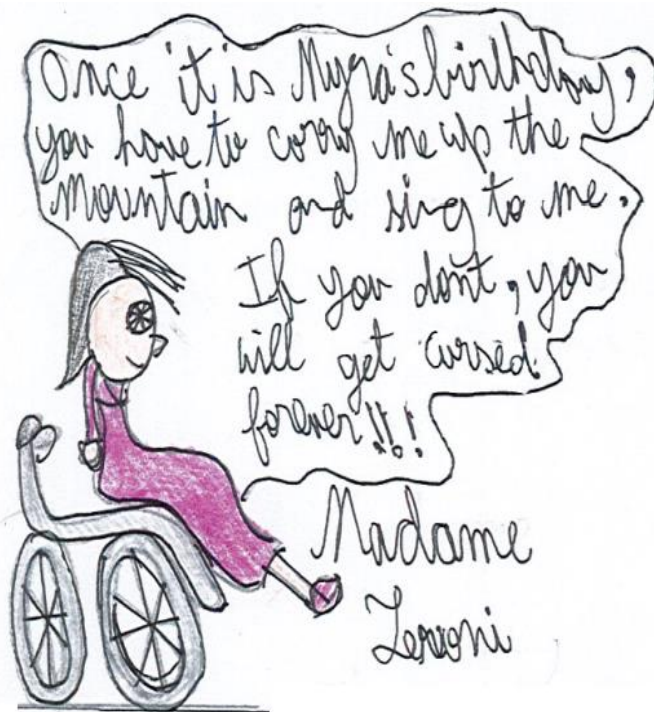 Once it is Myra's birthday,
you have to carry me up the
Mountain and sing to me.
If you dont, you
will get cursed
forever!!!
Madame
Zeroni